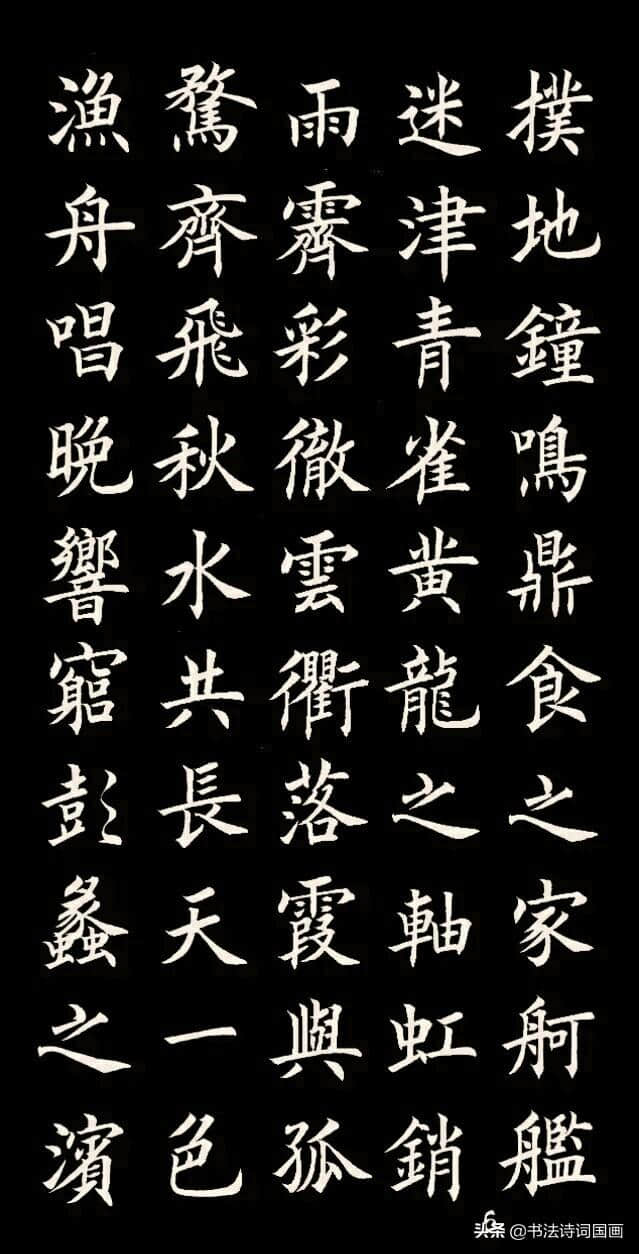 撲地鐘鳴鼎食之家舸艦
迷津青雀黃龍之軸虹銷
雨霽彩徹雲衢落霞與孤
鶩齊飛秋水共長天一色
漁舟唱晚響窮彭蠡之濱
6
头条 @书法诗词国画